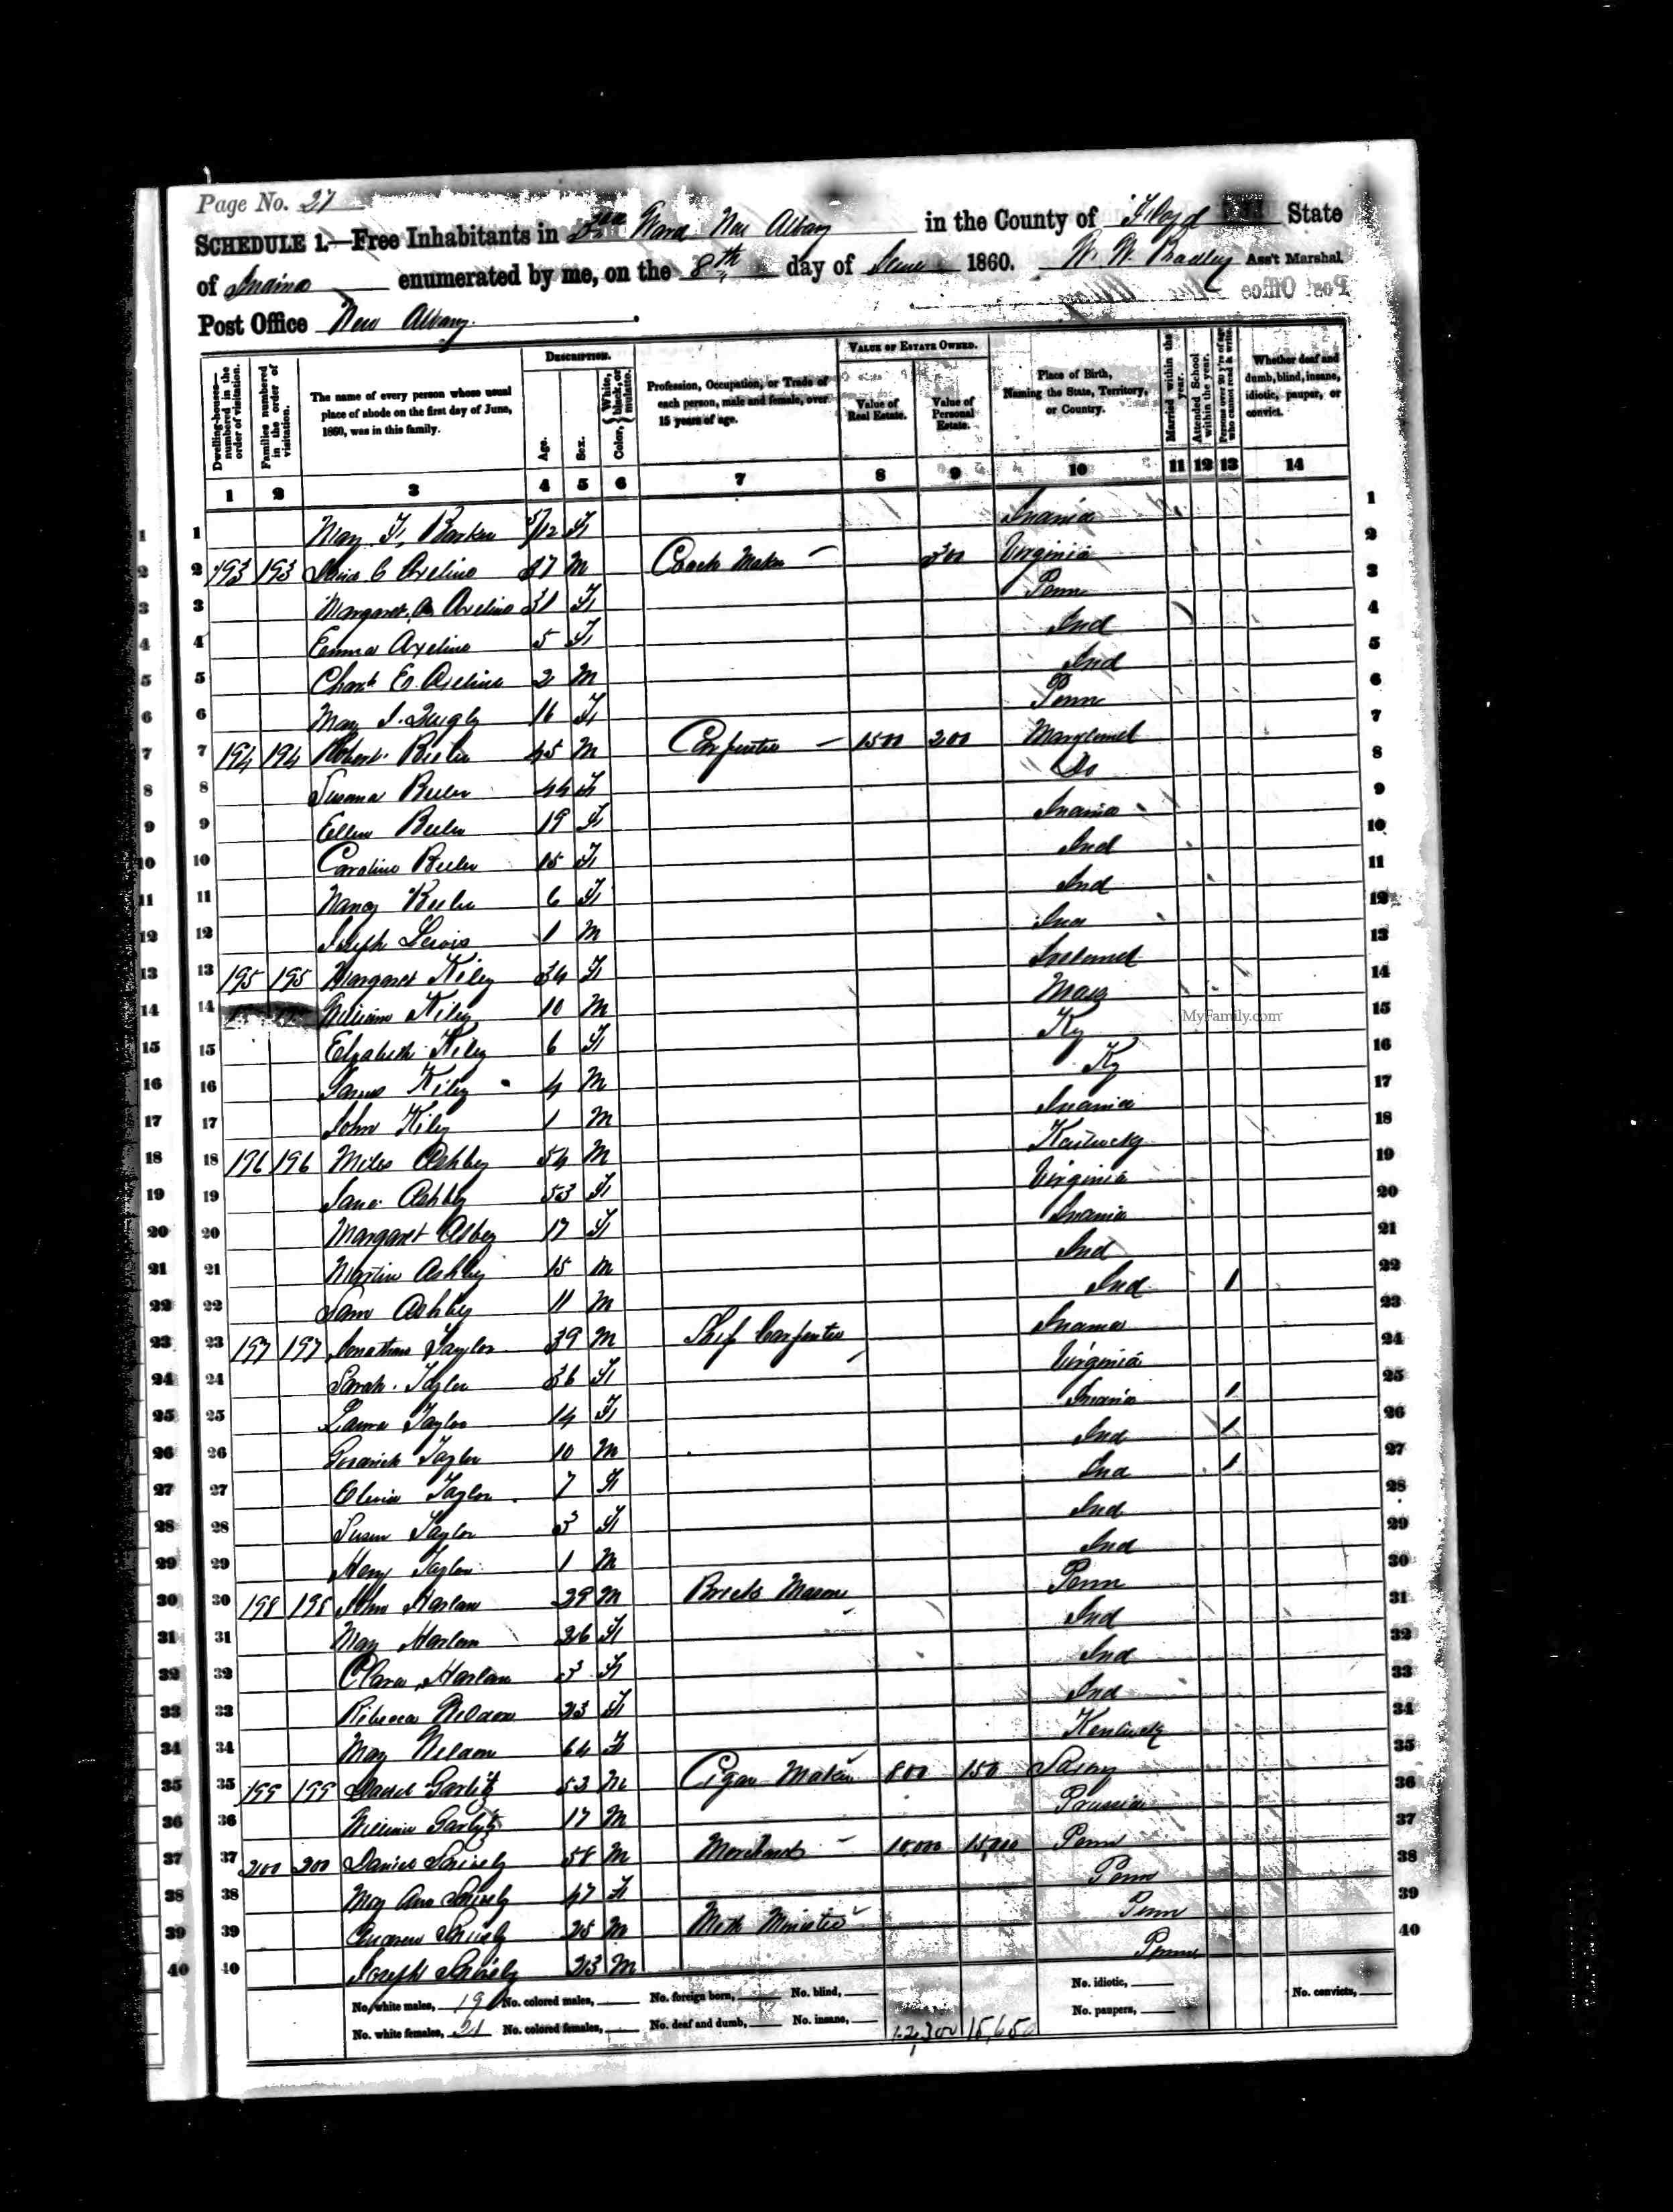 Page No. 27
SCHEDULE 1.—Free Inhabitants in Ward New Albany in the County of Floyd State
of Indiana enumerated by me, on the 8th day of June 1860. W. W. Bradley Ass't Marshal.
Post Office New Albany.
Dwelling-houses—numbered in the order of visitation.
Families numbered in the order of visitation.
The name of every person whose usual place of abode on the first day of June, 1860, was in this family.
DESCRIPTION.
Age.
Sex.
Color, White, black, or mulatto.
Profession, Occupation, or Trade of each person, male and female, over 15 years of age.
VALUE OF ESTATE OWNED.
Value of Real Estate.
Value of Personal Estate.
Place of Birth, Naming the State, Territory, or Country.
Married within the year.
Attended School within the year.
Persons over 20 y'rs of age who cannot read & write.
Whether deaf and dumb, blind, insane, idiotic, pauper, or convict.
1 2 3 4 5 6 7 8 9 10 11 12 13 14
1 May F. Barker 5/12 F Indiana
2 193 193 C Axeline 37 M Coach Maker 300 Virginia
3 Margaret A Axeline 31 F Penn
4 Emma Axeline 5 F Ind
5 E. Axeline 2 M Ind
6 May 16 F Penn
7 194 194 Robert Beeler 45 M Carpenter 1500 200 Maryland
8 Susana Beeler 44 F Do
9 Ellen Beeler 19 F Indiana
10 Caroline Beeler 15 F Ind
11 Nancy Beeler 6 F Ind
12 Joseph Lewis 1 M Ind
13 195 195 Margaret Kiley 34 F Ireland
14 William Kiley 10 M Mass
15 Elizabeth Kiley 6 F Ky
16 James Kiley 4 M Ky
17 John Kiley 1 M Indiana
18 196 196 Miles Ashby 54 M Kentucky
19 Jane Ashby 53 F Virginia
20 Margaret Asbey 17 F Indiana
21 Martin Ashby 15 M Ind
22 Sam Ashby 11 M Ind 1
23 197 197 Jonathan Taylor 39 M Ship Carpenter Indiana
24 Sarah Taylor 36 F Virginia
25 Laura Taylor 14 F Indiana 1
26 Taylor 10 M Ind 1
27 Taylor 7 F Ind 1
28 Susan Taylor 3 F Ind
29 Henry Taylor 1 M Ind
30 198 198 John Harlan 29 M Brick Mason Penn
31 May Harlan 26 F Ind
32 Clara Harlan 3 F Ind
33 Rebecca Nelson 23 F Ind
34 May Nelson 64 F Kentucky
35 199 199 Garlitz 53 M Cigar Maker 800 150 Saxony
36 William Garlitz 17 M Prussia
37 200 200 Daniel Snively 58 M Merchant 10,000 15,000 Penn
38 May Ann Snively 47 F Penn
39 Andrew Snively 25 M Meth Minister Penn
40 Joseph Snively 23 M Penn
No. white males, 19 No. colored males, No. foreign born, No. blind, No. idiotic, No. convicts,
No. white females, 21 No. colored females, No. deaf and dumb, No. insane, 12,300 15,650 No. paupers,
MyFamily.com